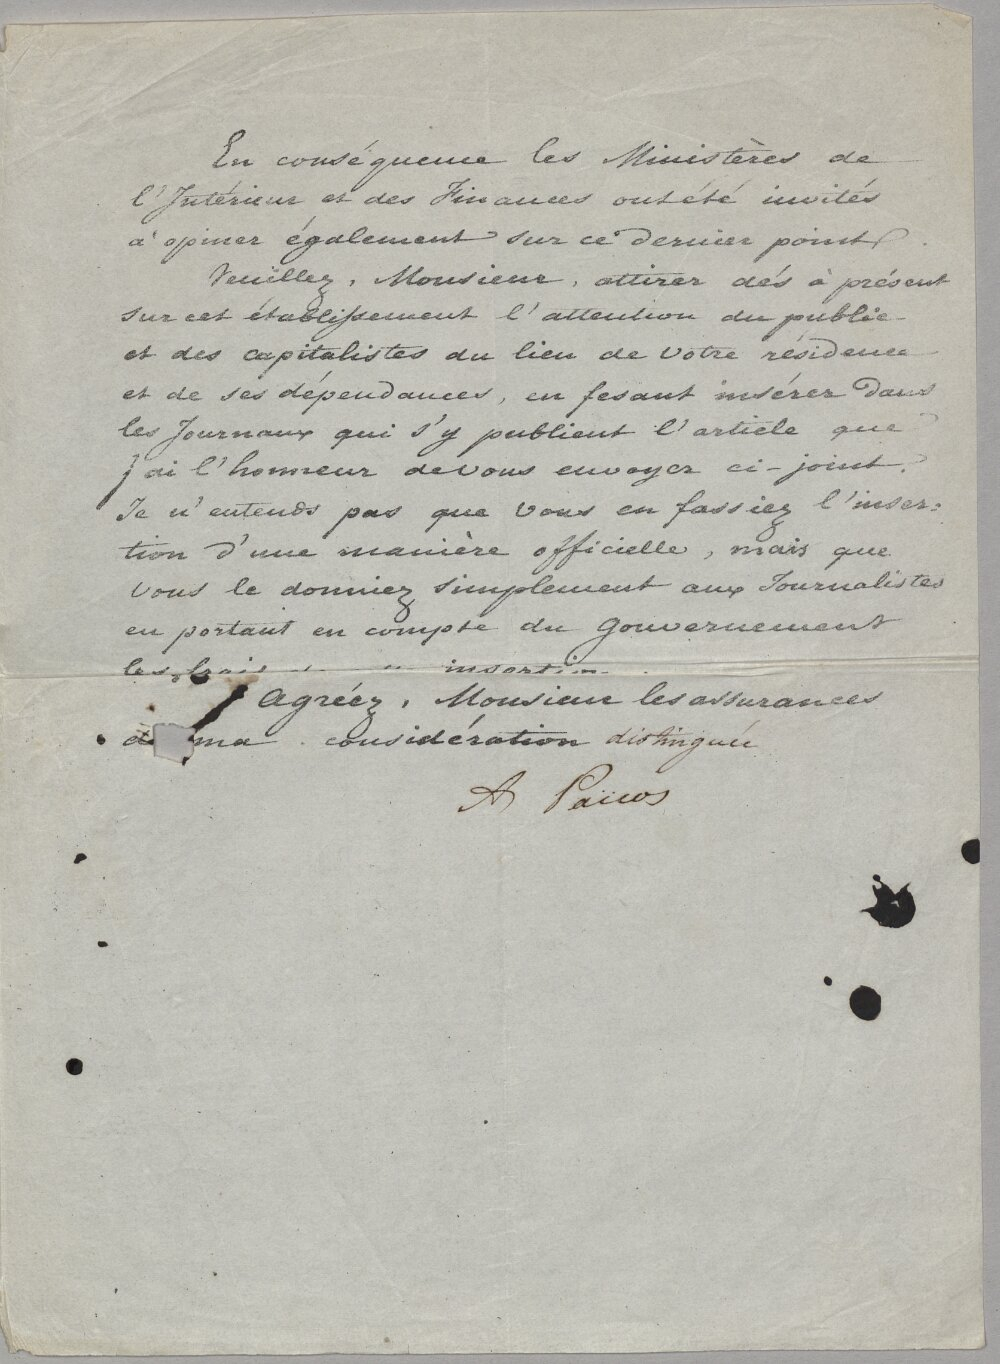 En conséquence les Ministères de
l'Intérieur et des Finances ont été invités
à opiner également sur ce dernier point.
Veuillez, Monsieur, attirer dés à présent
sur cet établissement l'attention du public
et des capitalistes du lieu de votre résidence
et de ses dépendances, en fesant insérer dans
les Journaux qui s'y publient l'article que
j'ai l'honneur de vous envoyer ci-joint.
Je n'entends pas que vous en fassiez l'inser=
tion d'une manière officielle, mais que
vous le donniez simplement aux Journalistes
en portant en compte du Gouvernement
les frais insertion.
Agréez, Monsieur les assurances
de ma considération distinguée
A Païcos